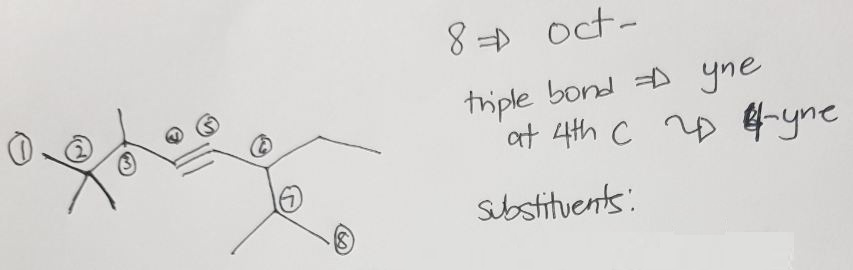 8 ⇒ oct-
triple bond ⇒ yne
at 4th C ⤳ 4-yne
substituents:
① ② ③ ④ ⑤ ⑥ ⑦ ⑧